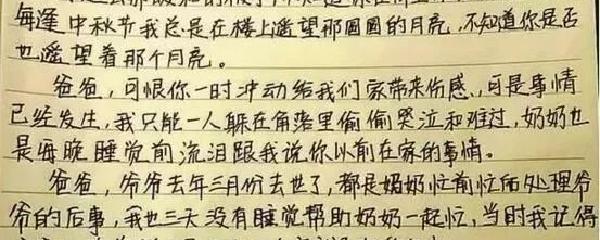 每逢中秋节我总是在楼上遥望那圆圆的月亮,不知道你是否
也遥望着那个月亮。
爸爸,可恨你一时冲动给我们家带来伤感,可是事情
已经发生,我只能一人躲在角落里偷偷哭泣和难过,奶奶也
是每晚睡觉前流泪跟我说你以前在家的事情。
爸爸,爷爷去年三月份去世了,都是奶奶忙前忙后处理爷
爷的后事,我也三天没有睡觉帮助奶奶一起忙,当时我记得